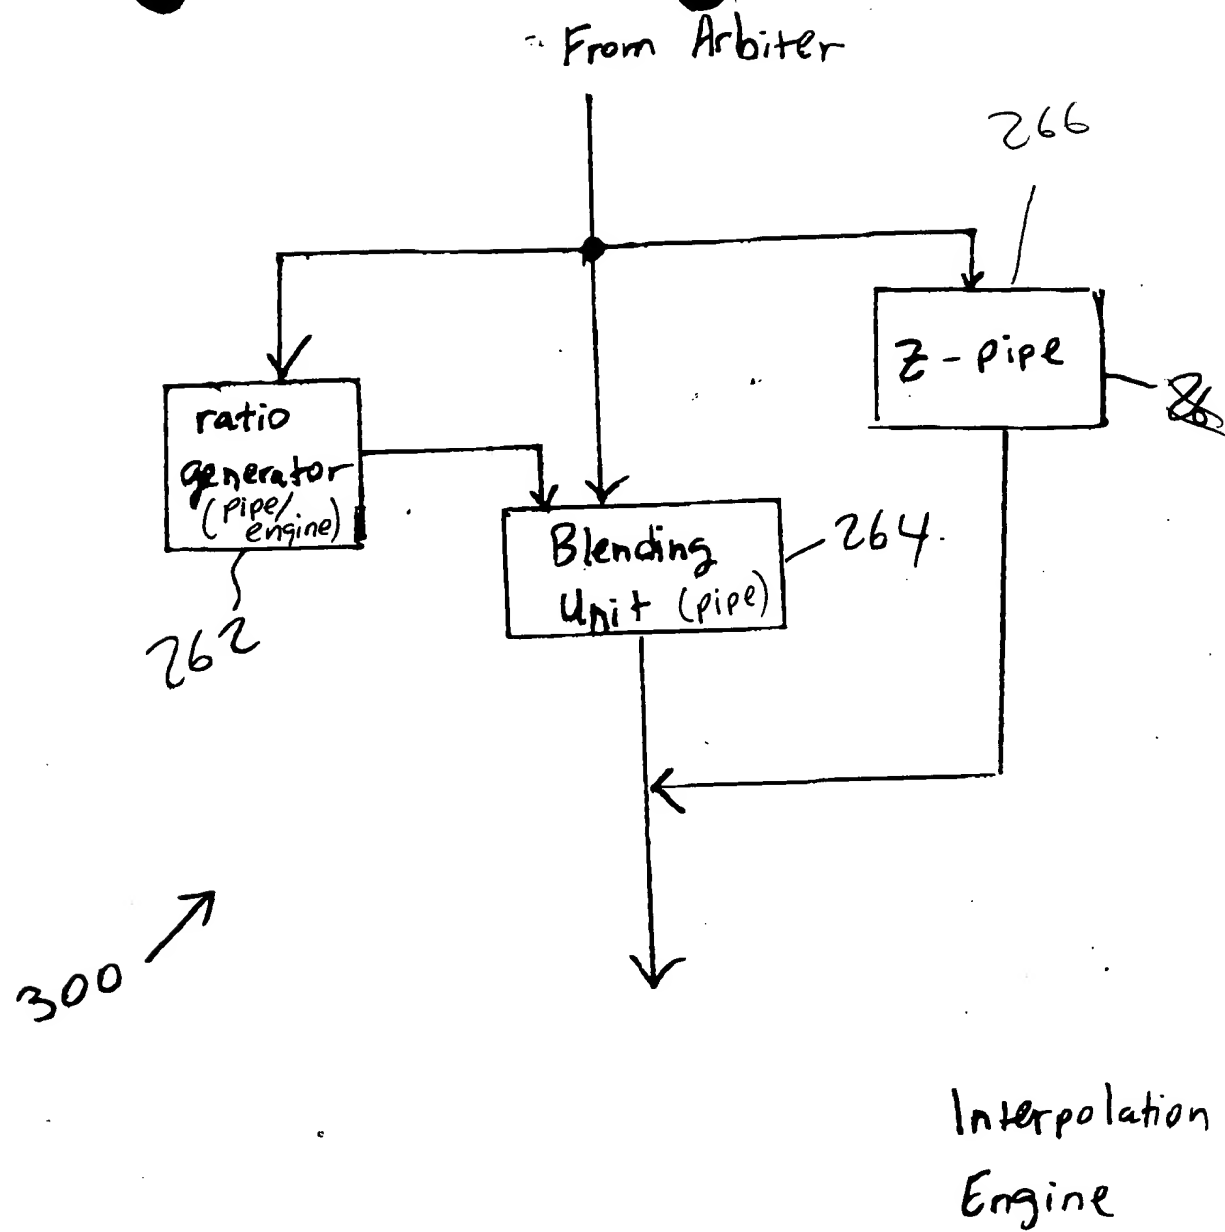 From Arbiter
266
z-pipe
ratio
generator
(pipe/
engine)
Blending
Unit (pipe)
264
262
300
Interpolation
Engine